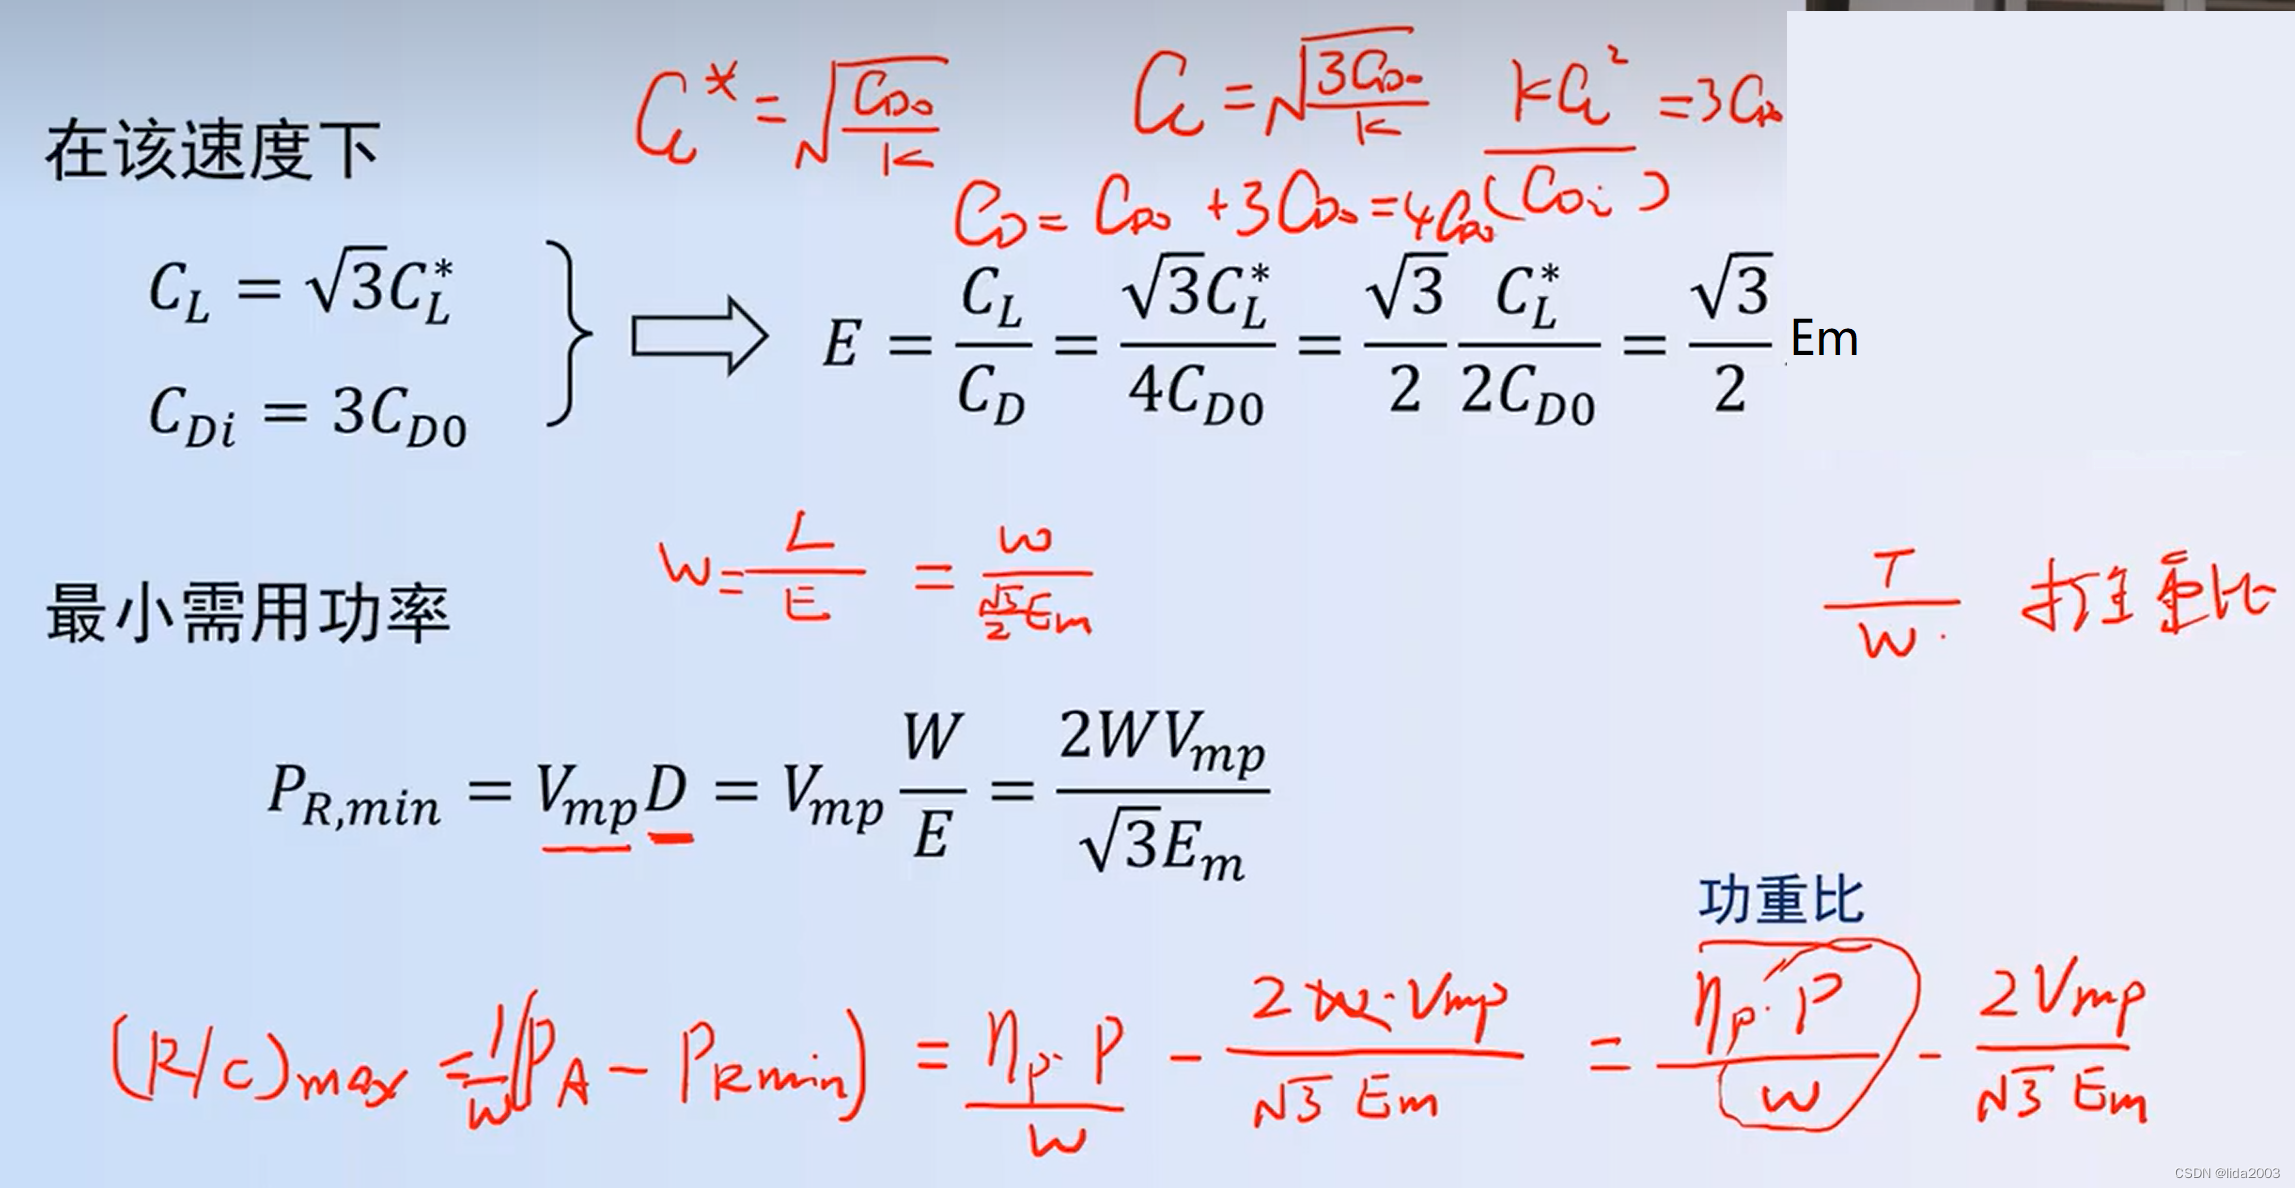 C_L* = √(C_D0/K)   C_L = √(3C_D0/K)   KC_L²/(C_Di) = 3C_D0
在该速度下
C_D = C_D0 + 3C_D0 = 4C_D0
C_L = √3C_L*
C_Di = 3C_D0
E = C_L/C_D = √3C_L*/4C_D0 = √3/2 C_L*/2C_D0 = √3/2 Em
W = L/E = W/(√3/2 Em)   T/W. 推重比
最小需用功率
P_R,min = V_mp D = V_mp W/E = 2WV_mp/√3E_m
功重比
(R/C)max = 1/W (P_A - P_Rmin) = η_P·P/W - 2W·Vmp/√3 Em = η_P·P/W - 2Vmp/√3 Em
CSDN @lida2003